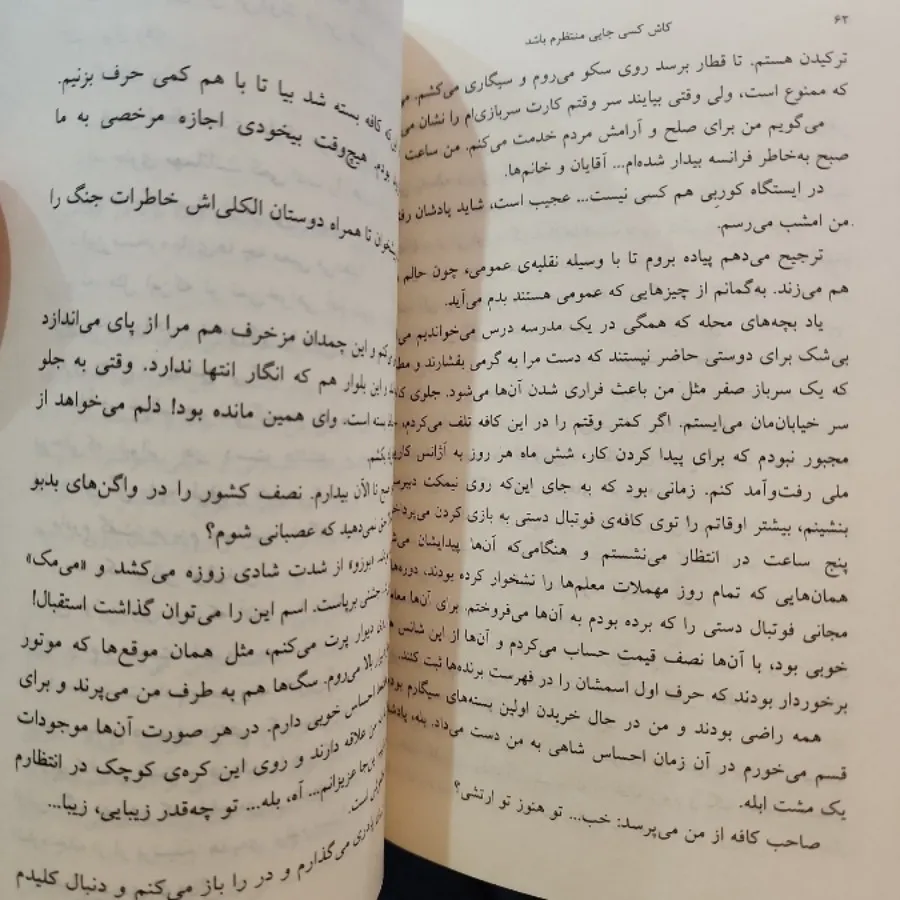 ۶۲
کاش کسی جایی منتظرم باشد
ترکیدن هستم. تا قطار برسد روی سکو می‌روم و سیگاری می‌کشم.
که ممنوع است، ولی وقتی بیایند سر وقتم کارت سربازی‌ام را نشان
می‌گویم من برای صلح و آرامش مردم خدمت می‌کنم. من ساعت
صبح به‌خاطر فرانسه بیدار شده‌ام... آقایان و خانم‌ها.
در ایستگاه کوربی هم کسی نیست... عجیب است، شاید یادشان
من امشب می‌رسم.
ترجیح می‌دهم پیاده بروم تا با وسیله نقلیه‌ی عمومی، چون حالم
هم می‌زند. به‌گمانم از چیزهایی که عمومی هستند بدم می‌آید.
یاد بچه‌های محله که همگی در یک مدرسه درس می‌خواندیم
بی‌شک برای دوستی حاضر نیستند که دست مرا به گرمی بفشارند و
که یک سرباز صفر مثل من باعث فراری شدن آن‌ها می‌شود. جلوی
سر خیابان‌مان می‌ایستم. اگر کمتر وقتم را در این کافه تلف می‌کردم،
مجبور نبودم که برای پیدا کردن کار، شش ماه هر روز به آژانس
ملی رفت‌وآمد کنم. زمانی بود که به جای این‌که روی نیمکت
بنشینم، بیشتر اوقاتم را توی کافه‌ی فوتبال دستی به بازی کردن
پنج ساعت در انتظار می‌نشستم و هنگامی‌که آن‌ها پیدایشان
همان‌هایی که تمام روز مهملات معلم‌ها را نشخوار کرده بودند،
مجانی فوتبال دستی را که برده بودم به آن‌ها می‌فروختم. برای آن‌ها
خوبی بود، با آن‌ها نصف قیمت حساب می‌کردم و آن‌ها از این شانس
برخوردار بودند که حرف اول اسمشان را در فهرست برنده‌ها ثبت کنند.
همه راضی بودند و من در حال خریدن اولین بسته‌های سیگارم
قسم می‌خورم در آن زمان احساس شاهی به من دست می‌داد. بله،
یک مشت ابله.
صاحب کافه از من می‌پرسد: خب... تو هنوز تو ارتشی؟
کافه بسته شد بیا تا با هم کمی حرف بزنیم.
بودم. هیچ‌وقت بیخودی اجازه مرخصی به ما
تا همراه دوستان الکلی‌اش خاطرات جنگ را
و این چمدان مزخرف هم مرا از پای می‌اندازد
این بلوار هم که انگار انتها ندارد. وقتی به جلو
بسته است. وای همین مانده بود! دلم می‌خواهد از
تا الآن بیدارم. نصف کشور را در واگن‌های بدبو
حق نمی‌دهید که عصبانی شوم؟
«بوزو» از شدت شادی زوزه می‌کشد و «می‌مک»
جشنی برپاست. اسم این را می‌توان گذاشت استقبال!
دیوار پرت می‌کنم، مثل همان موقع‌ها که موتور
بالا می‌روم. سگ‌ها هم به طرف من می‌پرند و برای
احساس خوبی دارم. در هر صورت آن‌ها موجودات
من علاقه دارند و روی این کره‌ی کوچک در انتظارم
عزیزانم... آه، بله... تو چه‌قدر زیبایی، زیبا...
است.
می‌گذارم و در را باز می‌کنم و دنبال کلیدم